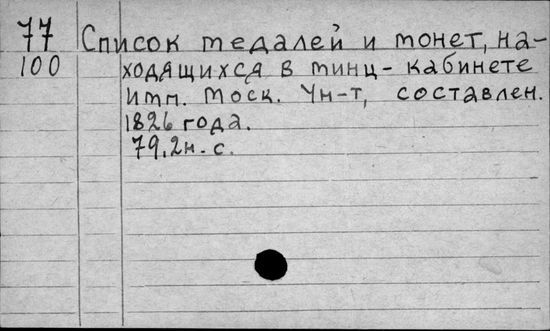 77 Список медалей и монет, на-
100 ходящихся в минц-кабинете
Имп. Моск. Ун-т, составлен.
1826 года.
79, 2н. с.